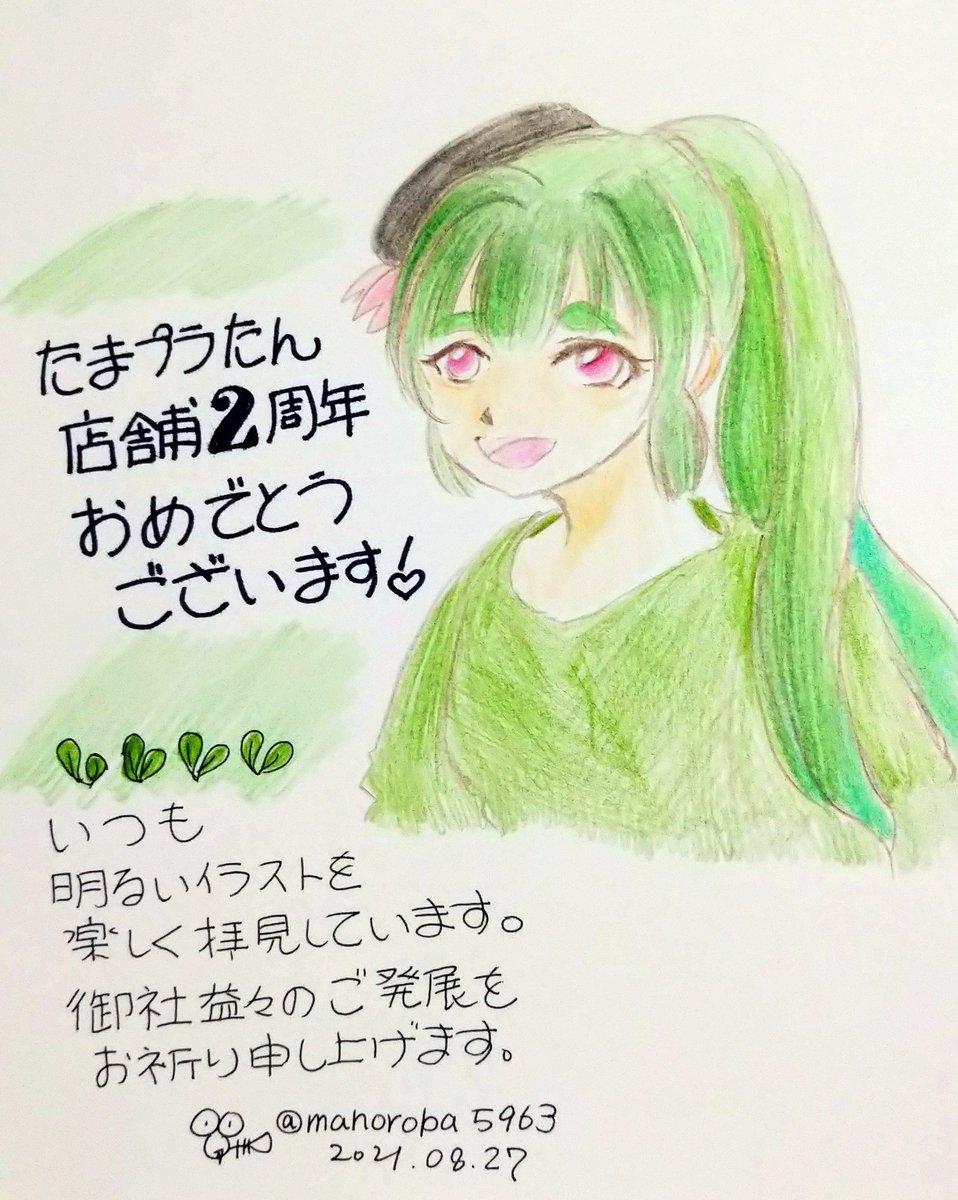 たまプラたん
店舗2周年
おめでとう
ございます!
いつも
明るいイラストを
楽しく拝見しています。
御社益々のご発展を
お祈り申し上げます。
@mahoroba5963
2021.08.27